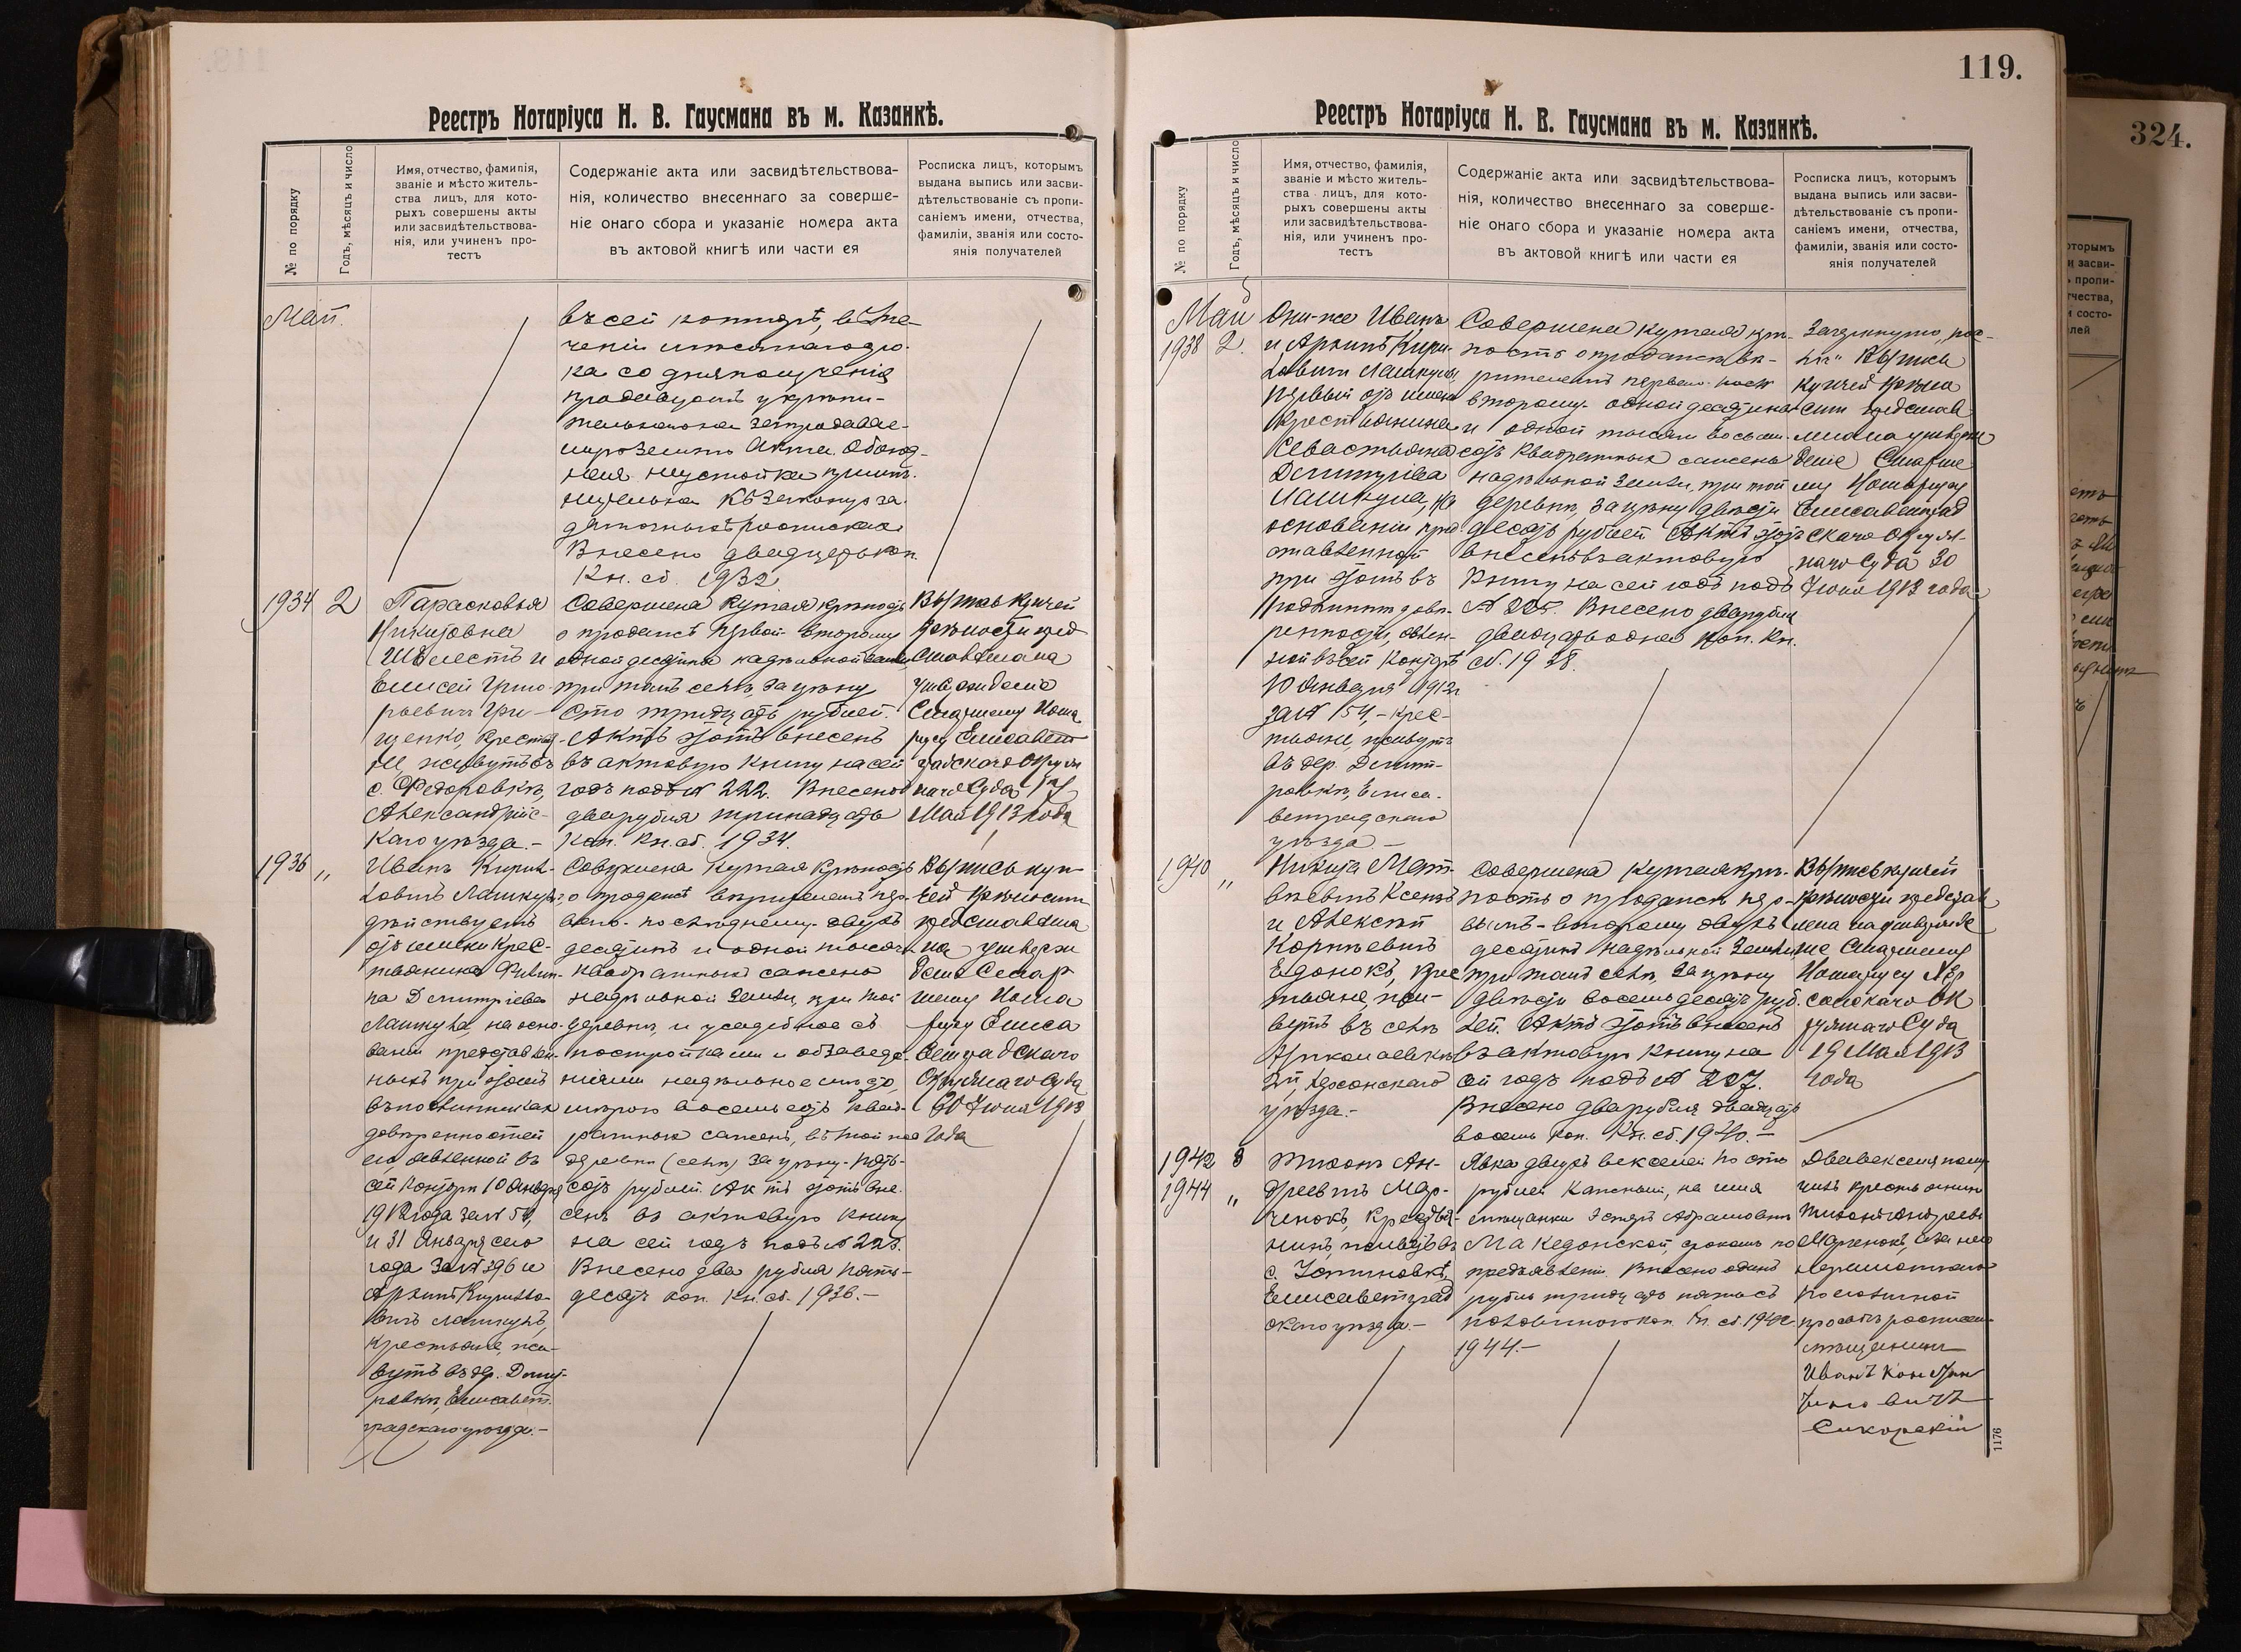 Реестръ Нотаріуса Н. В. Гаусмана въ м. Казанкѣ.
№ по порядку
Годъ, мѣсяцъ и число
Имя, отчество, фамилія,
званіе и мѣсто житель-
ства лицъ, для кото-
рыхъ совершены акты
или засвидѣтельствова-
нія, или учиненъ про-
тестъ
Содержаніе акта или засвидѣтельствова-
нія, количество внесеннаго за соверше-
ніе онаго сбора и указаніе номера акта
въ актовой книгѣ или части ея
Росписка лицъ, которымъ
выдана выпись или засви-
дѣтельствованіе съ пропи-
саніемъ имени, отчества,
фамиліи, званія или состо-
янія получателей
Май.
въ сей конторѣ, въ те-
ченіи
ка со дня полученія
продавцомъ укрѣпи-
Акта. Обоюд-
ная неустойка
къ
Внесено двадцать коп.
Кн. сб. 1932
1934 2
Парасковья
Никитовна
Шелестъ и
Елисей Григо-
рьевичъ Гри-
щенко, крестья-
не, живутъ въ
с. Федоровкѣ,
Александрійс-
каго уѣзда.-
Совершена купчая крѣпость
о продажѣ первой второму
одной десятины надѣльной земли,
при томъ селѣ, за цѣну
сто тридцать рублей.
Актъ этотъ внесенъ
въ актовую книгу на сей
годъ подъ № 222. Внесено
два рубля тринадцать
коп. Кн. сб. 1934.
Выпись купчей
крѣпости пред
ставлена на
утвержденіе
Старшему Нота
ріусу Елисавет
градскаго Окруж
наго Суда
Мая 1913 года
1936 „
Иванъ Кирил-
ловичъ Лашкулъ,
дѣйствуетъ
отъ имени крес-
тьянина Филип-
па Дмитріева
Лашкула, на осно-
ваніи представлен-
ныхъ при этомъ
въ подлинникахъ
довѣренностей
его, явленной въ
сей Конторѣ 10 Января
1912 года за № 54,
и 31 Января сего
года за № 396 и
Архипъ Кирилло-
вичъ Лашкулъ,
крестьяне, жи-
вутъ въ дер. Дмит-
ровкѣ, Елисавет-
градскаго уѣзда.-
Совершена купчая крѣпость
о продажѣ вѣрителемъ пер-
ваго- послѣднему двухъ
десятинъ и одной тысячи
квадратныхъ саженъ
надѣльной земли, при той
деревнѣ, и усадебное съ
постройками и обзаведе-
ніями надѣльное мѣсто,
мѣрою восемьсотъ квад-
ратныхъ саженъ, въ той же
деревнѣ (селѣ) за цѣну пять-
сотъ рублей. Актъ этотъ вне-
сенъ въ актовую книгу
на сей годъ подъ № 223.
Внесено два рубля пять-
десятъ коп. Кн. сб. 1936.-
Выпись куп
чей крѣпости
представлена
на утверж
деніе Стар
шему Нота
ріусу Елиса
ветградскаго
Окружнаго Суда
20 Іюня 1913
года
119.
Реестръ Нотаріуса Н. В. Гаусмана въ м. Казанкѣ.
№ по порядку
Годъ, мѣсяцъ и число
Имя, отчество, фамилія,
званіе и мѣсто житель-
ства лицъ, для кото-
рыхъ совершены акты
или засвидѣтельствова-
нія, или учиненъ про-
тестъ
Содержаніе акта или засвидѣтельствова-
нія, количество внесеннаго за соверше-
ніе онаго сбора и указаніе номера акта
въ актовой книгѣ или части ея
Росписка лицъ, которымъ
выдана выпись или засви-
дѣтельствованіе съ пропи-
саніемъ имени, отчества,
фамиліи, званія или состо-
янія получателей
Май
1938 2.
Они-же Иванъ
и Архипъ Кирил-
ловичи Лашкулы,
первый отъ имени
крестьянина
Севастьяна
Дмитріева
Лашкула, на
основаніи пред-
ставленной
при этомъ въ
подлинникѣ довѣ-
ренности, явлен-
ной въ сей Конторѣ
10 Января 1912 г.
за № 54,- крес-
тьяне, живутъ
въ дер. Дмит-
ровкѣ, Елиса-
ветградскаго
уѣзда.-
Совершена купчая крѣ-
пость о продажѣ вѣ-
рителемъ перваго
второму одной десятины
и одной тысячи восьми-
сотъ квадратныхъ саженъ
надѣльной земли, при той
деревнѣ, за цѣну двѣсти
десять рублей. Актъ этотъ
внесенъ въ актовую
книгу на сей годъ подъ
№ 225. Внесено два рубля
двадцать одна коп. Кн.
сб. 1938.
Зачеркнуто,
Выпись
купчей крѣпо
сти представ
лена на утверж
деніе Старше
му Нотаріусу
Елисаветград
скаго Окруж-
наго Суда 20
Іюня 1913 года
1940 „
Никита Мат-
вѣевичъ
и Алексѣй
Корнѣевичъ
крес-
тьяне, жи-
вутъ въ селѣ
Николаевкѣ
2й, Херсонскаго
уѣзда.-
Совершена купчая крѣ-
пость о продажѣ пер-
вымъ- второму двухъ
десятинъ надѣльной земли
при томъ селѣ, за цѣну
двѣсти восемьдесятъ руб-
лей. Актъ этотъ внесенъ
въ актовую книгу на
сей годъ подъ № 227.
Внесено два рубля двадцать
восемь коп. Кн. сб. 1940.-
Выпись купчей
крѣпости представ
лена на утвержде
ніе Старшему
Нотаріусу Хер
сонскаго Ок
ружнаго Суда
19 Мая 1913
года
1942 3
1944 „
Тихонъ Ан-
дреевичъ Мар-
ченокъ, крестья-
нинъ, живетъ въ
с. Устиновкѣ,
Елисаветград
скаго уѣзда.-
Явка двухъ векселей по сто
рублей каждый, на имя
мѣщанки Эстеръ Абрамовны
Македонской, срокомъ по
предъявленіи. Внесено одинъ
рубль тридцать пять съ
половиною коп. Кн. сб. 1942-
1944.-
Два векселя полу-
чилъ крестьянинъ
Тихонъ Андреевъ
Марченокъ, а за него
неграмотнаго
по личной
просьбѣ росписался
мѣщанинъ
Иванъ Констан
тиновичъ
Сикорскій
1176
324.
оторымъ
и засви-
ъ пропи-
тчества,
и состо-
елей